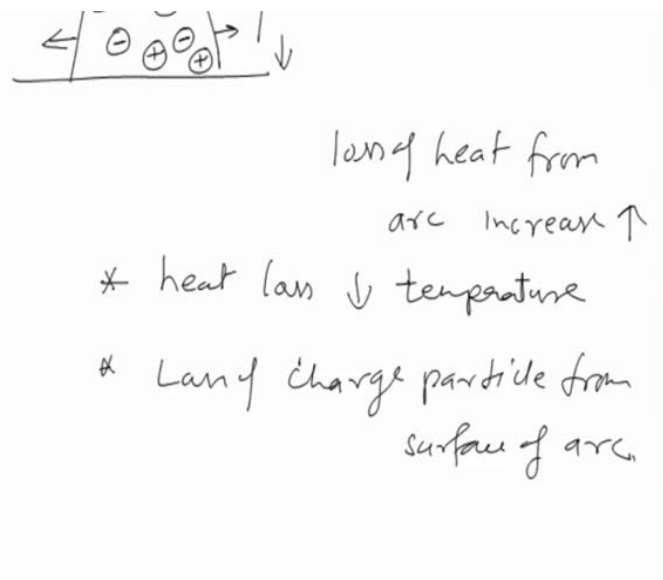 loss of heat from
arc increase ↑
* heat loss ↓ temperature
* Loss of charge particle from
surface of arc.